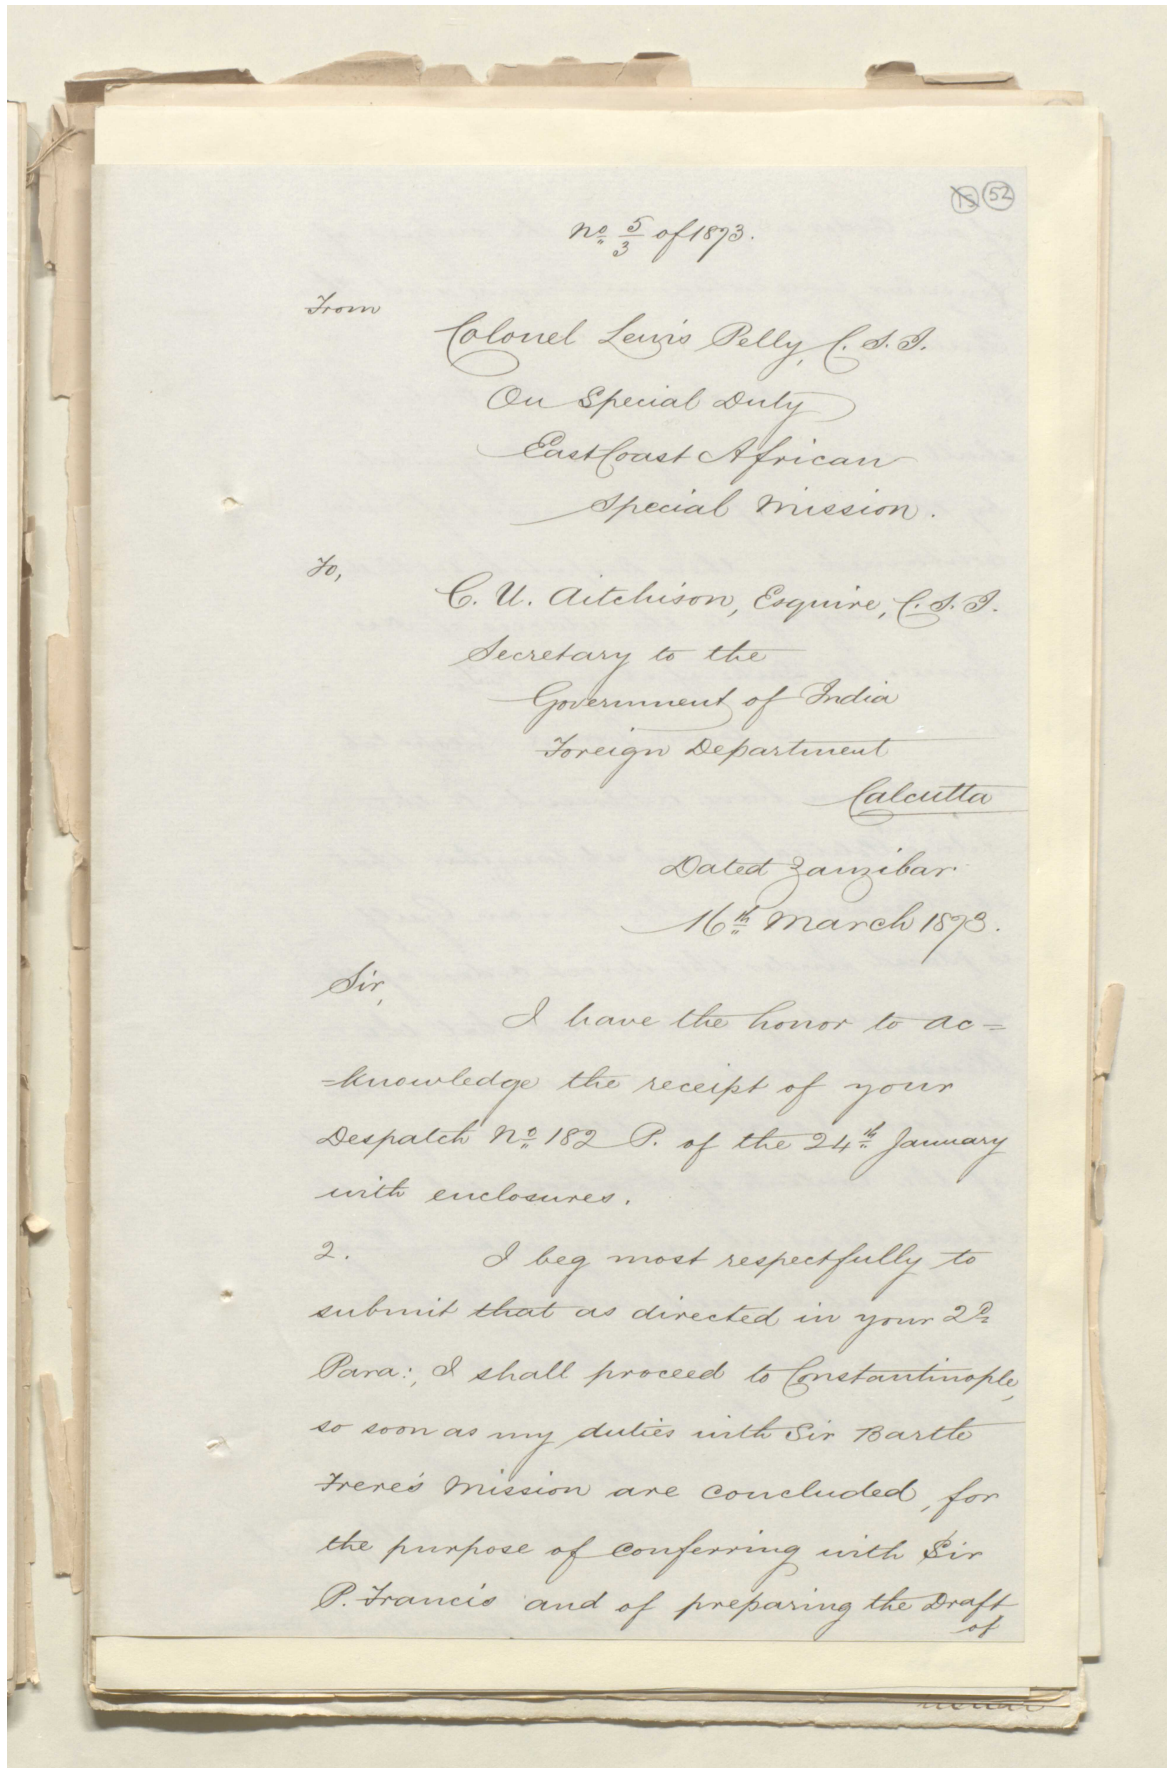 15 52
No. 5/3 of 1873.
From
Colonel Lewis Pelly, C.S.I.
On Special Duty
East Coast African
Special Mission.
To,
C. U. Aitchison, Esquire, C.S.I.
Secretary to the
Government of India
Foreign Department
Calcutta
Dated Zanzibar
16th March 1873.
Sir,
I have the honor to ac=
=knowledge the receipt of your
Despatch No. 182 P. of the 24th January
with enclosures.
2. I beg most respectfully to
submit that as directed in your 2d
Para:, I shall proceed to Constantinople,
so soon as my duties with Sir Bartle
Frere's Mission are concluded, for
the purpose of conferring with Sir
P. Francis and of preparing the Draft
of